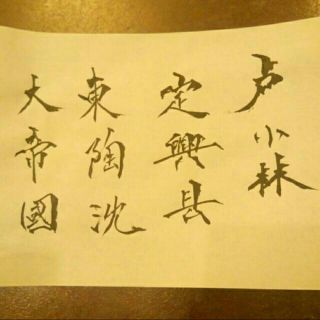 卢小林
定興县
東陶沈
大帝國